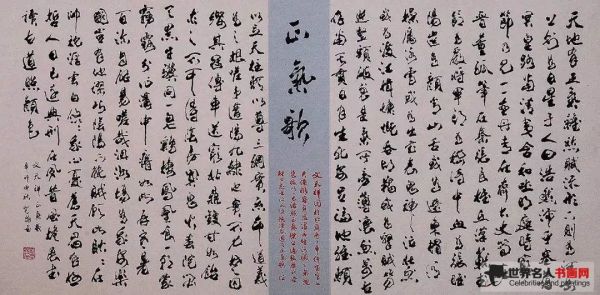 天地有正氣雜然賦流形下則為河嶽
上則為日星於人曰浩然沛乎塞蒼
冥皇路當清夷含和吐明庭時窮
節乃見一一垂丹青在齊太史簡在
晉董狐筆在秦張良椎在漢蘇武
節為嚴將軍頭為嵇侍中血為張睢
陽齒為顏常山舌或為遼東帽清
操厲冰雪或為出師表鬼神泣壯烈
或為渡江楫慷慨吞胡羯或為擊賊
笏逆豎頭破裂是氣所磅礴凜烈萬古
存當其貫日月生死安足論地維賴
正氣歌
以立天柱賴以尊三綱實系命道義
為之根嗟予遘陽九隸也實不力楚囚
纓其冠傳車送窮北鼎鑊甘如飴
求之不可得陰房闃鬼火春院閟
天黑牛驥同一皂雞棲鳳凰食一朝蒙
霧露分作溝中瘠如此再寒暑
百沴自辟易嗟哉沮洳場為我安樂
國豈有他繆巧陰陽不能賊顧此耿耿在
仰視浮雲白悠悠我心悲蒼天曷有極
哲人日已遠典刑在夙昔風簷展書
讀古道照顏色
文天祥正氣歌
世界名人书画网
Celebrities painting and